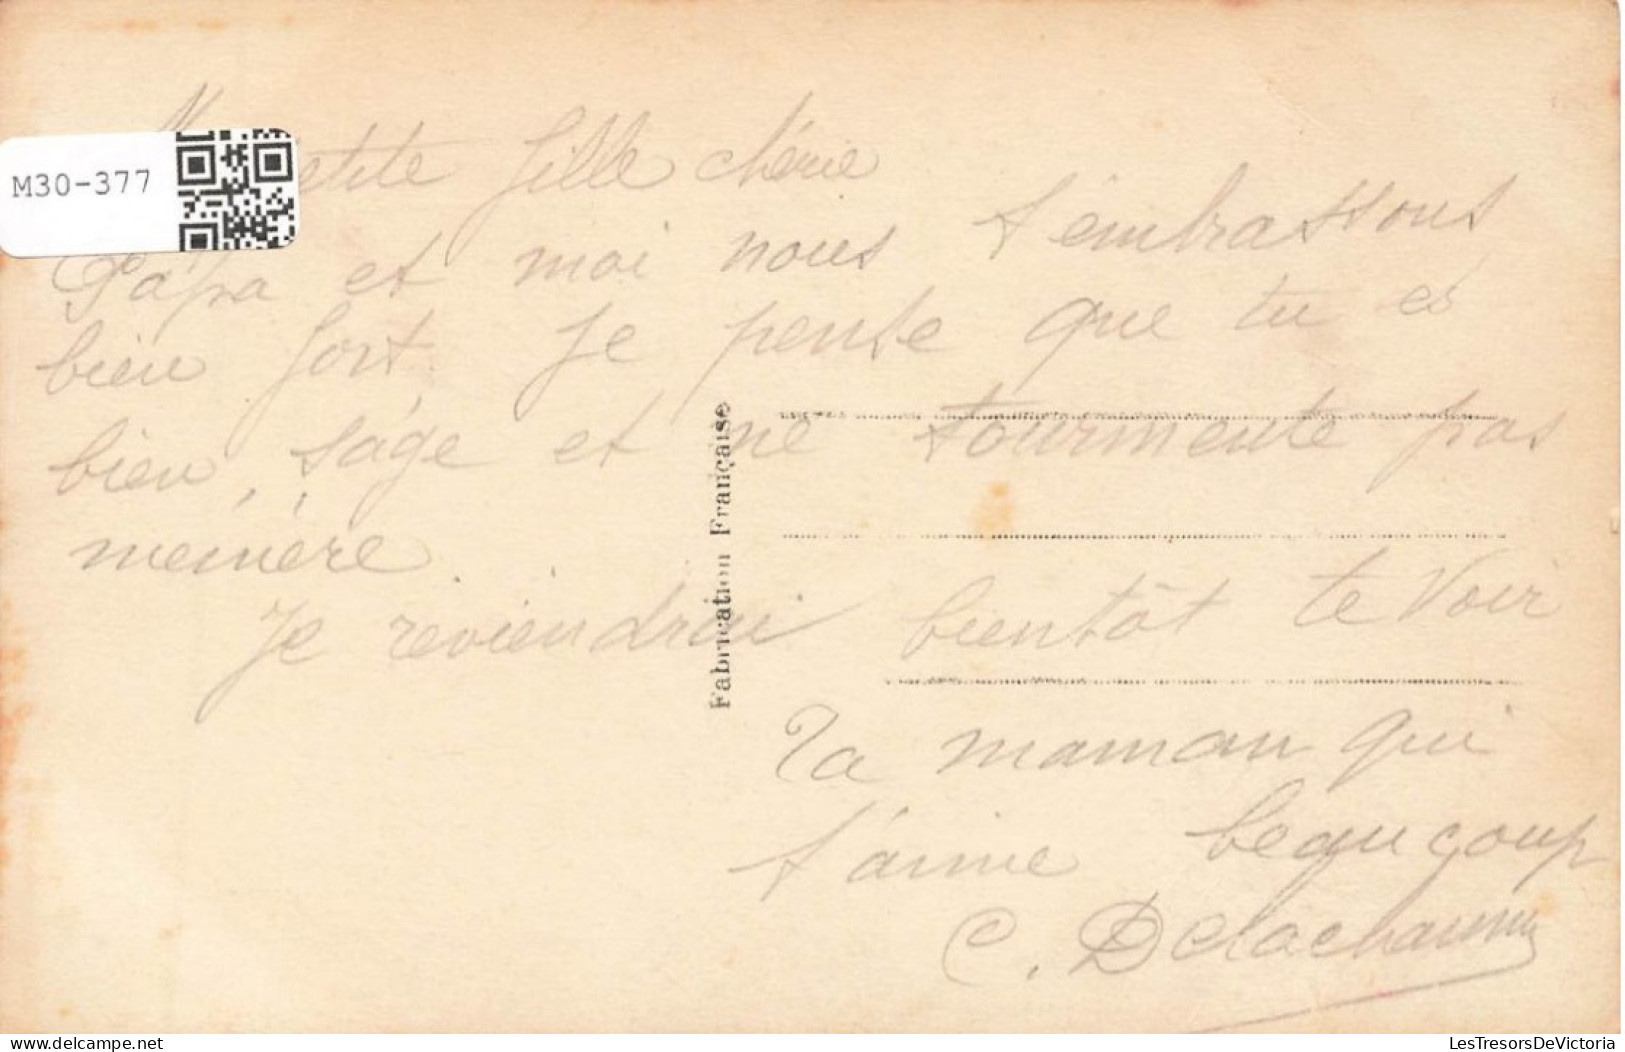 M30-377
etite fille chérie
Papa et moi nous t'embrassons
bien fort. Je pense que tu es
bien, sage et ne tourmente pas
mémère.
Je reviendrai bientôt te voir
Ta maman qui
t'aime beaucoup
C.
Fabrication Française
delcampe.net
LesTresorsDeVictoria